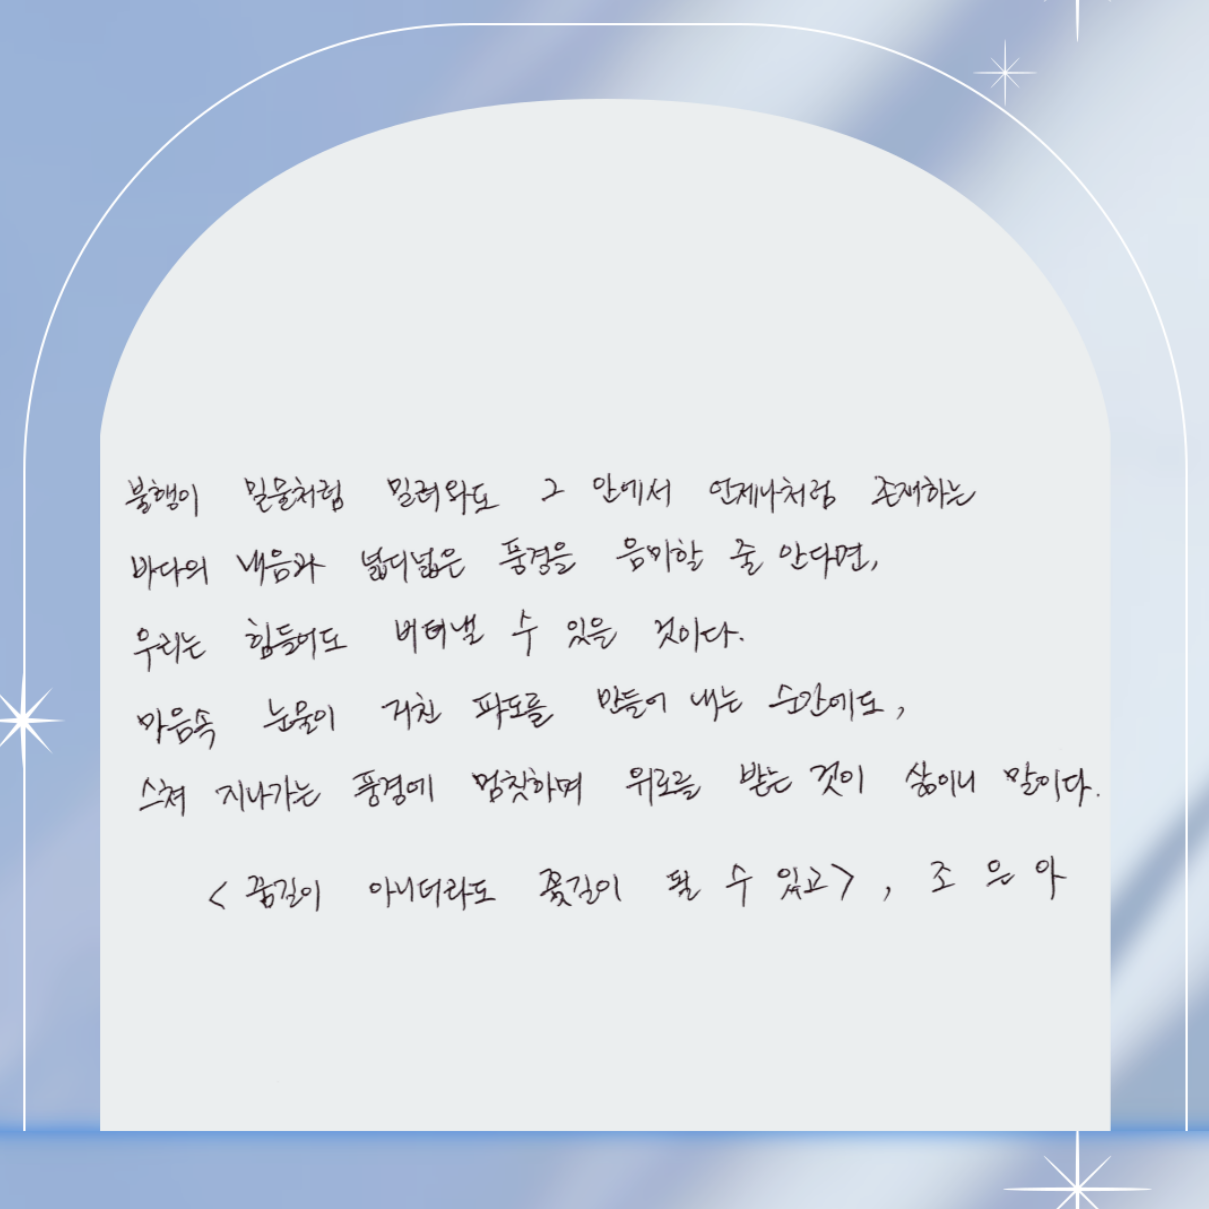 불행이 밀물처럼 밀려와도 그 안에서 언제나처럼 존재하는
바다의 내음과 넓디넓은 풍경을 음미할 줄 안다면,
우리는 힘들어도 버텨낼 수 있을 것이다.
마음속 눈물이 거친 파도를 만들어 내는 순간에도,
스쳐 지나가는 풍경에 멈칫하며 위로를 받는 것이 삶이니 말이다.
<꿈길이 아니더라도 꽃길이 될 수 있고>, 조은아